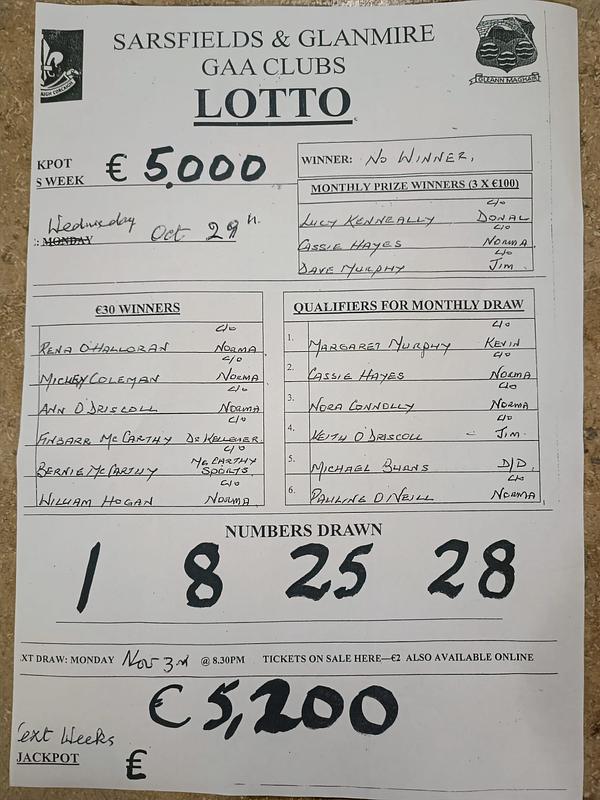 SARSFIELDS & GLANMIRE
GAA CLUBS
LOTTO
GLEANN MAGHAIR
KPOT
S WEEK € 5,000
WINNER: NO WINNER.
MONTHLY PRIZE WINNERS (3 X €100)
Wednesday
: MONDAY Oct 29th.
c/o
LUCY KENNEALLY DONAL
c/o
CASSIE HAYES NORMA
c/o
DAVE MURPHY JIM
€30 WINNERS
c/o
RENA O'HALLORAN NORMA
c/o
MICHEY COLEMAN NORMA
c/o
ANN O'DRISCOLL NORMA
c/o
FINBARR MCCARTHY DR KELLEHER
c/o
BERNIE MCCARTHY MCCARTHY SPORTS
c/o
WILLIAM HOGAN NORMA
QUALIFIERS FOR MONTHLY DRAW
c/o
1. MARGARET MURPHY KEVIN
c/o
2. CASSIE HAYES NORMA
c/o
3. NORA CONNOLLY NORMA
c/o
4. KEITH O'DRISCOLL - JIM
5. MICHAEL BURNS D/D
c/o
6. PAULINE O'NEILL NORMA
NUMBERS DRAWN
1 8 25 28
XT DRAW: MONDAY Nov 3rd @ 8.30PM TICKETS ON SALE HERE—€2 ALSO AVAILABLE ONLINE
€5,200
ext Weeks
JACKPOT €